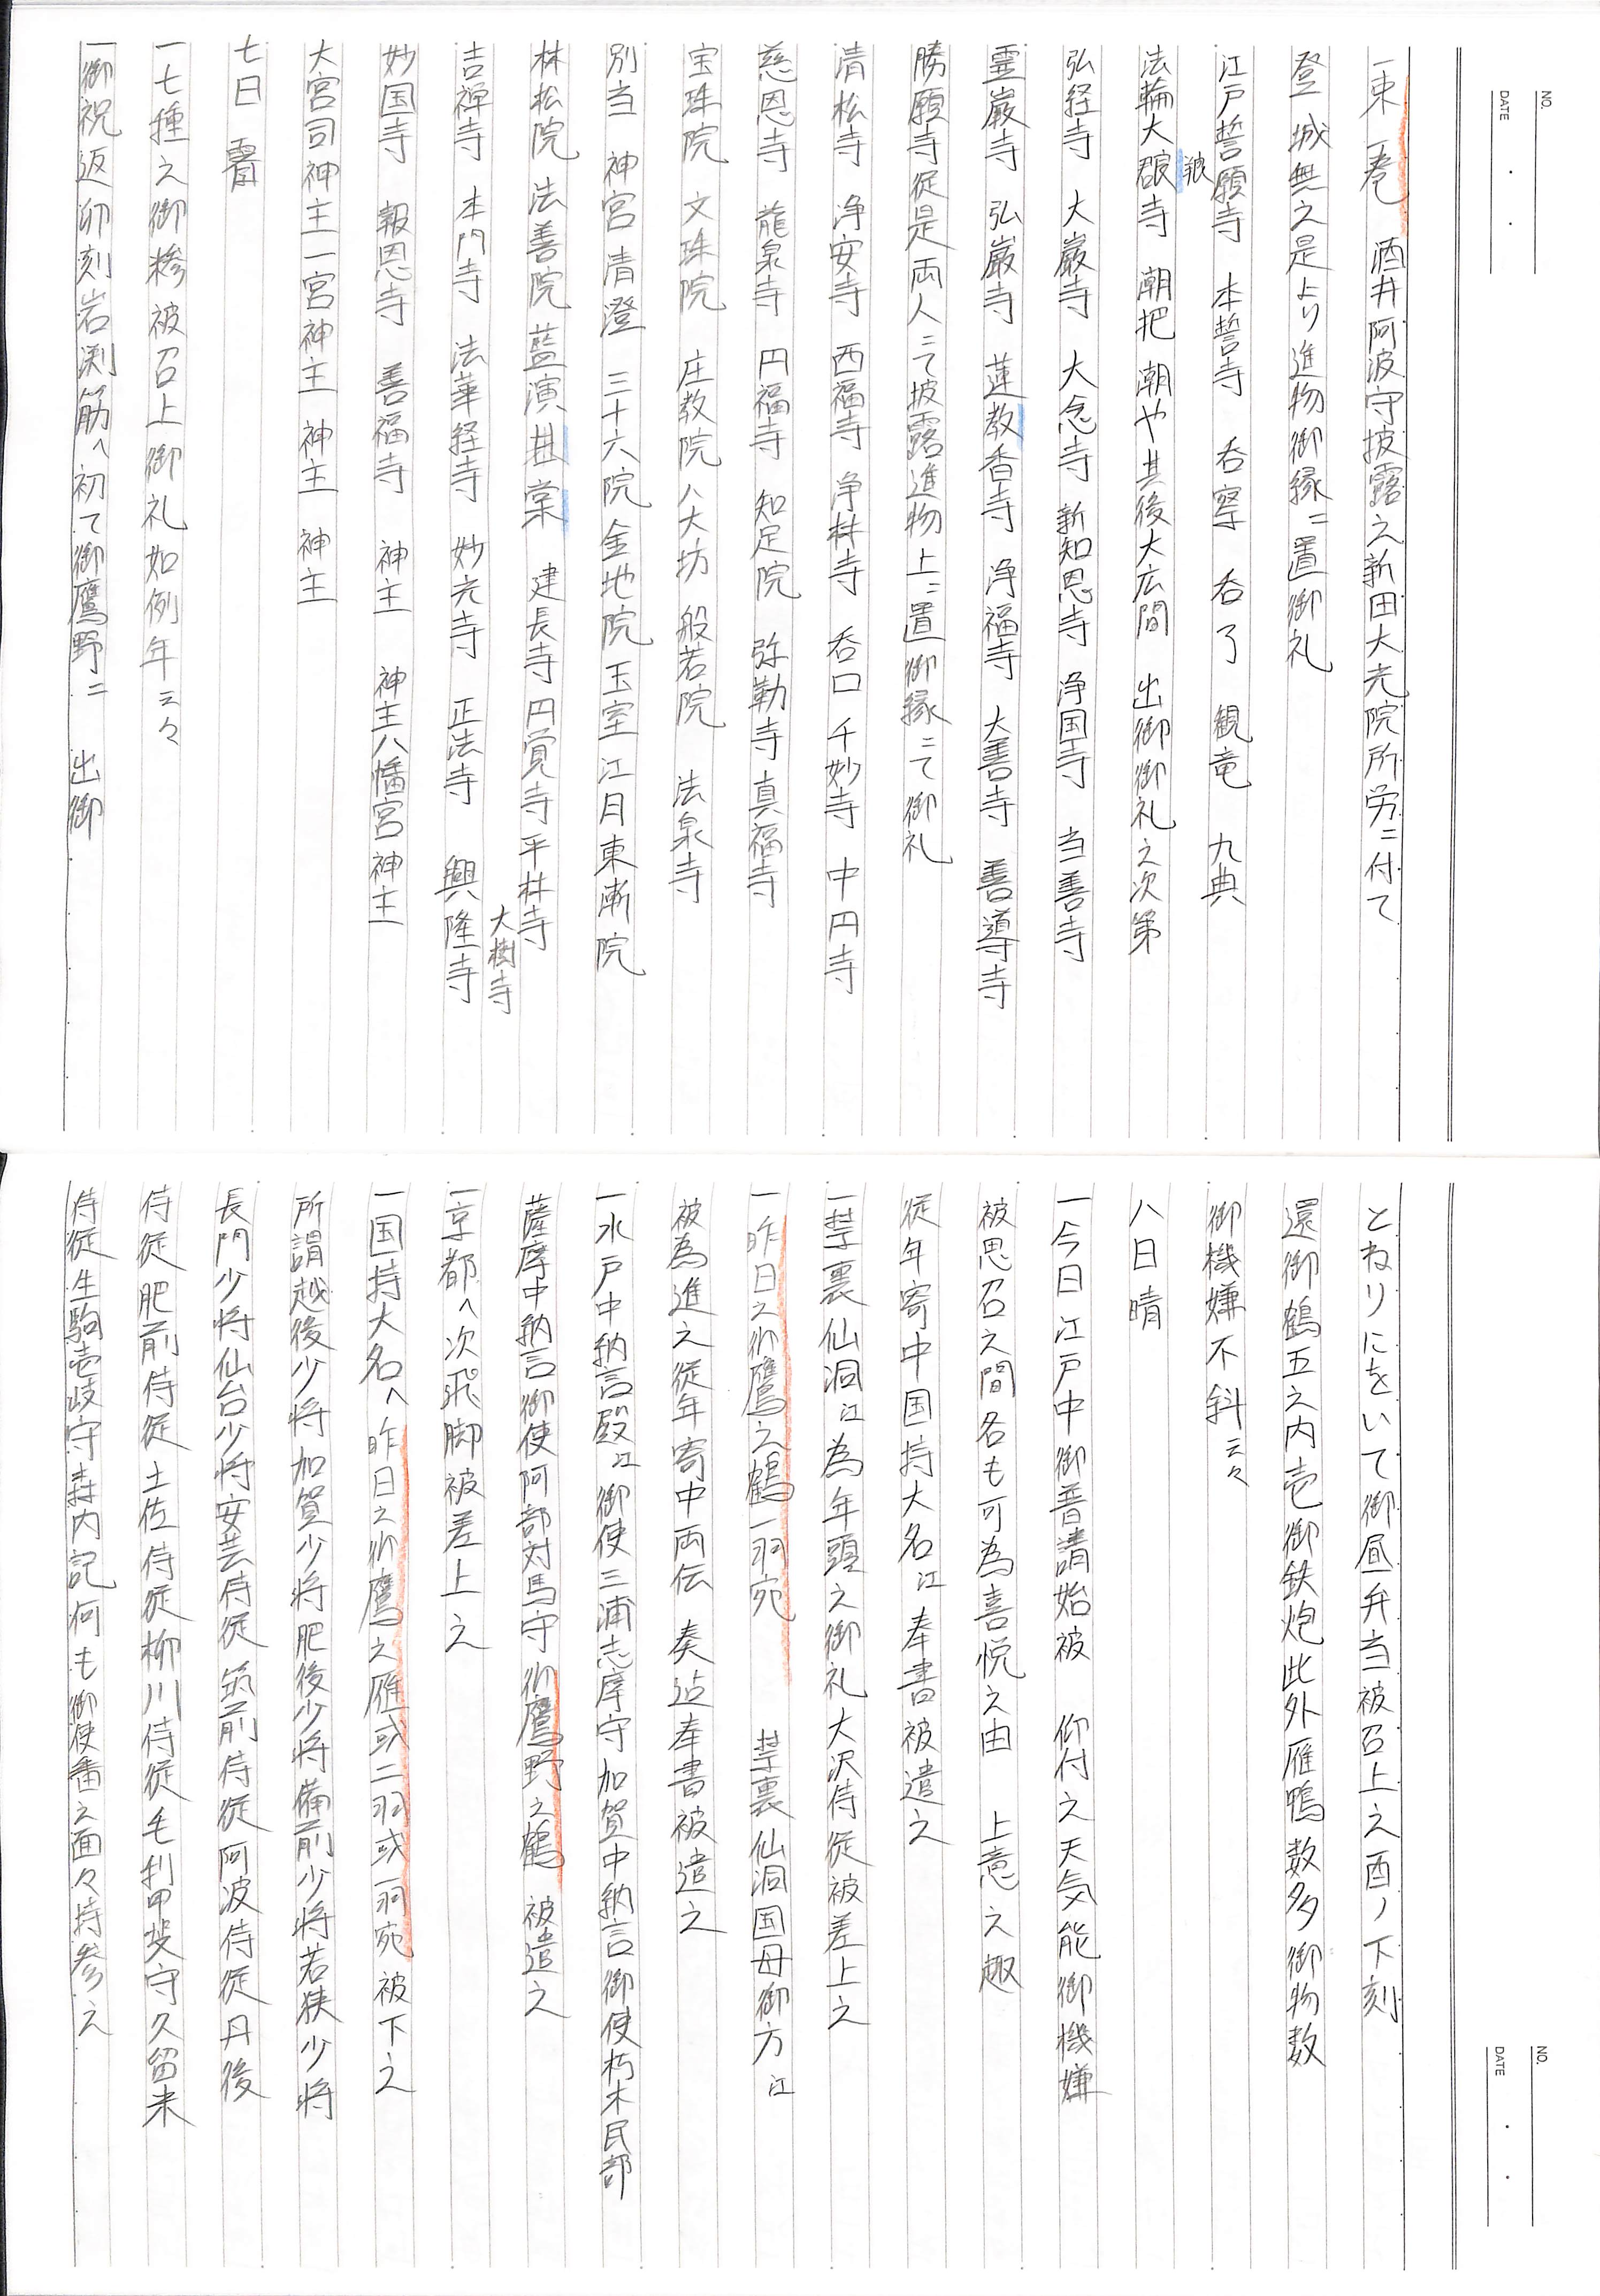 NO.
DATE
一束一巻　酒井阿波守披露之新田大光院所労ニ付て
登　城無之是より進物御縁ニ置御礼
江戸誓願寺　本誓寺　呑察　呑了　観竜　九典
法輪大寺　潮把　潮や其後大広間　出御御礼之次第
弘経寺　大巌寺　大念寺　新知恩寺　浄国寺　当善寺
霊巌寺　弘巌寺　蓮教香寺　浄福寺　大善寺　善導寺
勝願寺従是両人ニて披露進物上ニ置御縁ニて御礼
清松寺　浄安寺　西福寺　浄林寺　呑口　千妙寺　中円寺
慈恩寺　龍泉寺　円福寺　知足院　弥勒寺　真福寺
宝珠院　文珠院　庄教院　八大坊　般若院　法泉寺
別当　神宮　清澄　三十六院金地院　玉室　江月東漸院
林松院　法善院　藍演　棠　建長寺　円覚寺　平林寺
大樹寺
吉禅寺　本門寺　法華経寺　妙光寺　正法寺　興隆寺
妙国寺　報恩寺　善福寺　神主　神主八幡宮神主
大宮司神主一宮神主　神主　神主
七日
一七種之御糝被召上御礼如例年云々
一御祝返卯刻岩渕筋へ初て御鷹野ニ　出御
NO.
DATE
とねりにをいて御昼弁当被召上之酉ノ下刻
還御鶴五之内壱御鉄炮此外雁鴨数多御物数
御機嫌不斜云々
八日　晴
一今日江戸中御普請始被　仰付之天気能御機嫌
被思召之間各も可為喜悦之由　上意之趣
従年寄中国持大名江奉書被遣之
一禁裏仙洞江為年頭之御礼大沢侍従被差上之
一昨日之御鷹之鶴一羽宛　禁裏仙洞国母御方江
被為進之従年寄中両伝　奏迠奉書被遣之
一水戸中納言殿江御使三浦志摩守加賀中納言御使朽木民部
薩摩中納言御使阿部対馬守御鷹野之鶴　被遣之
一京都へ次飛脚被差上之
一国持大名へ昨日之御鷹之雁或二羽或一羽宛被下之
所謂越後少将加賀少将肥後少将備前少将若狭少将
長門少将仙台少将安芸侍従筑前侍従阿波侍従丹後
侍従肥前侍従土佐侍従柳川侍従毛利甲斐守久留米
侍従生駒壱岐守森内記何も御使番之面々持参之